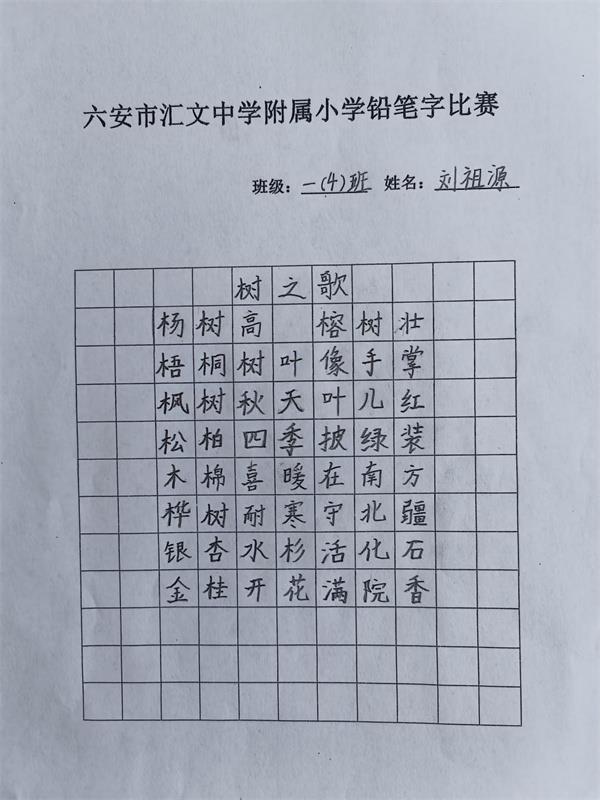 六安市汇文中学附属小学铅笔字比赛
班级：一(4)班 姓名：刘祖源
树之歌
杨树高 榕树壮
梧桐树叶像手掌
枫树秋天叶儿红
松柏四季披绿装
木棉喜暖在南方
桦树耐寒守北疆
银杏水杉活化石
金桂开花满院香